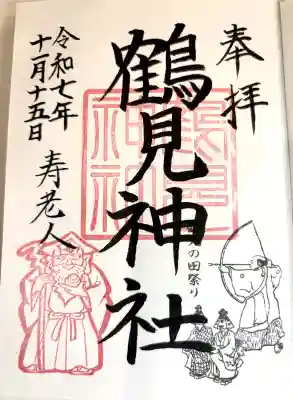 奉拝
鶴見神社
鶴見
神社
の田祭り
寿老人
令和七年
十一月十五日